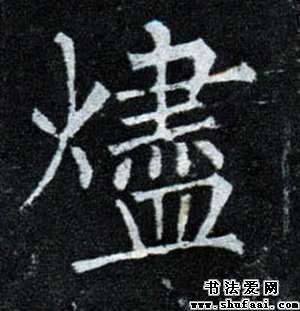 燼
书法爱网
www.shufaai.com